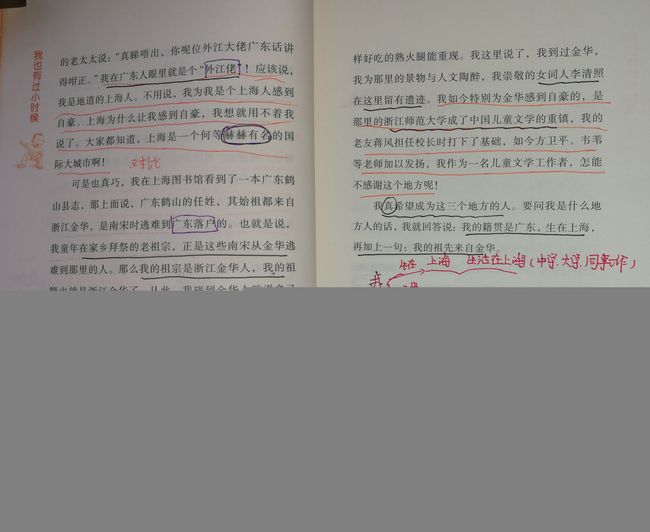 我也有过小时候
的老太太说：“真睇唔出，你呢位外江大佬广东话讲
得咁正。”我在广东人眼里就是个“外江佬”！应该说，
我是地道的上海人。不用说，我为我是个上海人感到
自豪。上海为什么让我感到自豪，我想就用不着我
说了。大家都知道，上海是一个何等赫赫有名的国
际大城市啊！
对比
可是也真巧，我在上海图书馆看到了一本广东鹤
山县志，那上面说，广东鹤山的任姓，其始祖都来自
浙江金华，是南宋时逃难到广东落户的。也就是说，
我童年在家乡拜祭的老祖宗，正是这些南宋从金华逃
难到那里的人。那么我的祖宗是浙江金华人，我的祖
样好吃的熟火腿能重现。我这里说了，我到过金华，
我为那里的景物与人文陶醉，我崇敬的女词人李清照
在这里留有遗迹。我如今特别为金华感到自豪的，是
那里的浙江师范大学成了中国儿童文学的重镇，我的
老友蒋风担任校长时打下了基础，如今方卫平、韦苇
等老师加以发扬，我作为一名儿童文学工作者，怎能
不感谢这个地方呢！
我真希望成为这三个地方的人。要问我是什么地
方人的话，我就回答说：我的籍贯是广东，生在上海，
再加上一句：我的祖先来自金华。
生在 上海 生活在上海（中学、大学、工作）
我